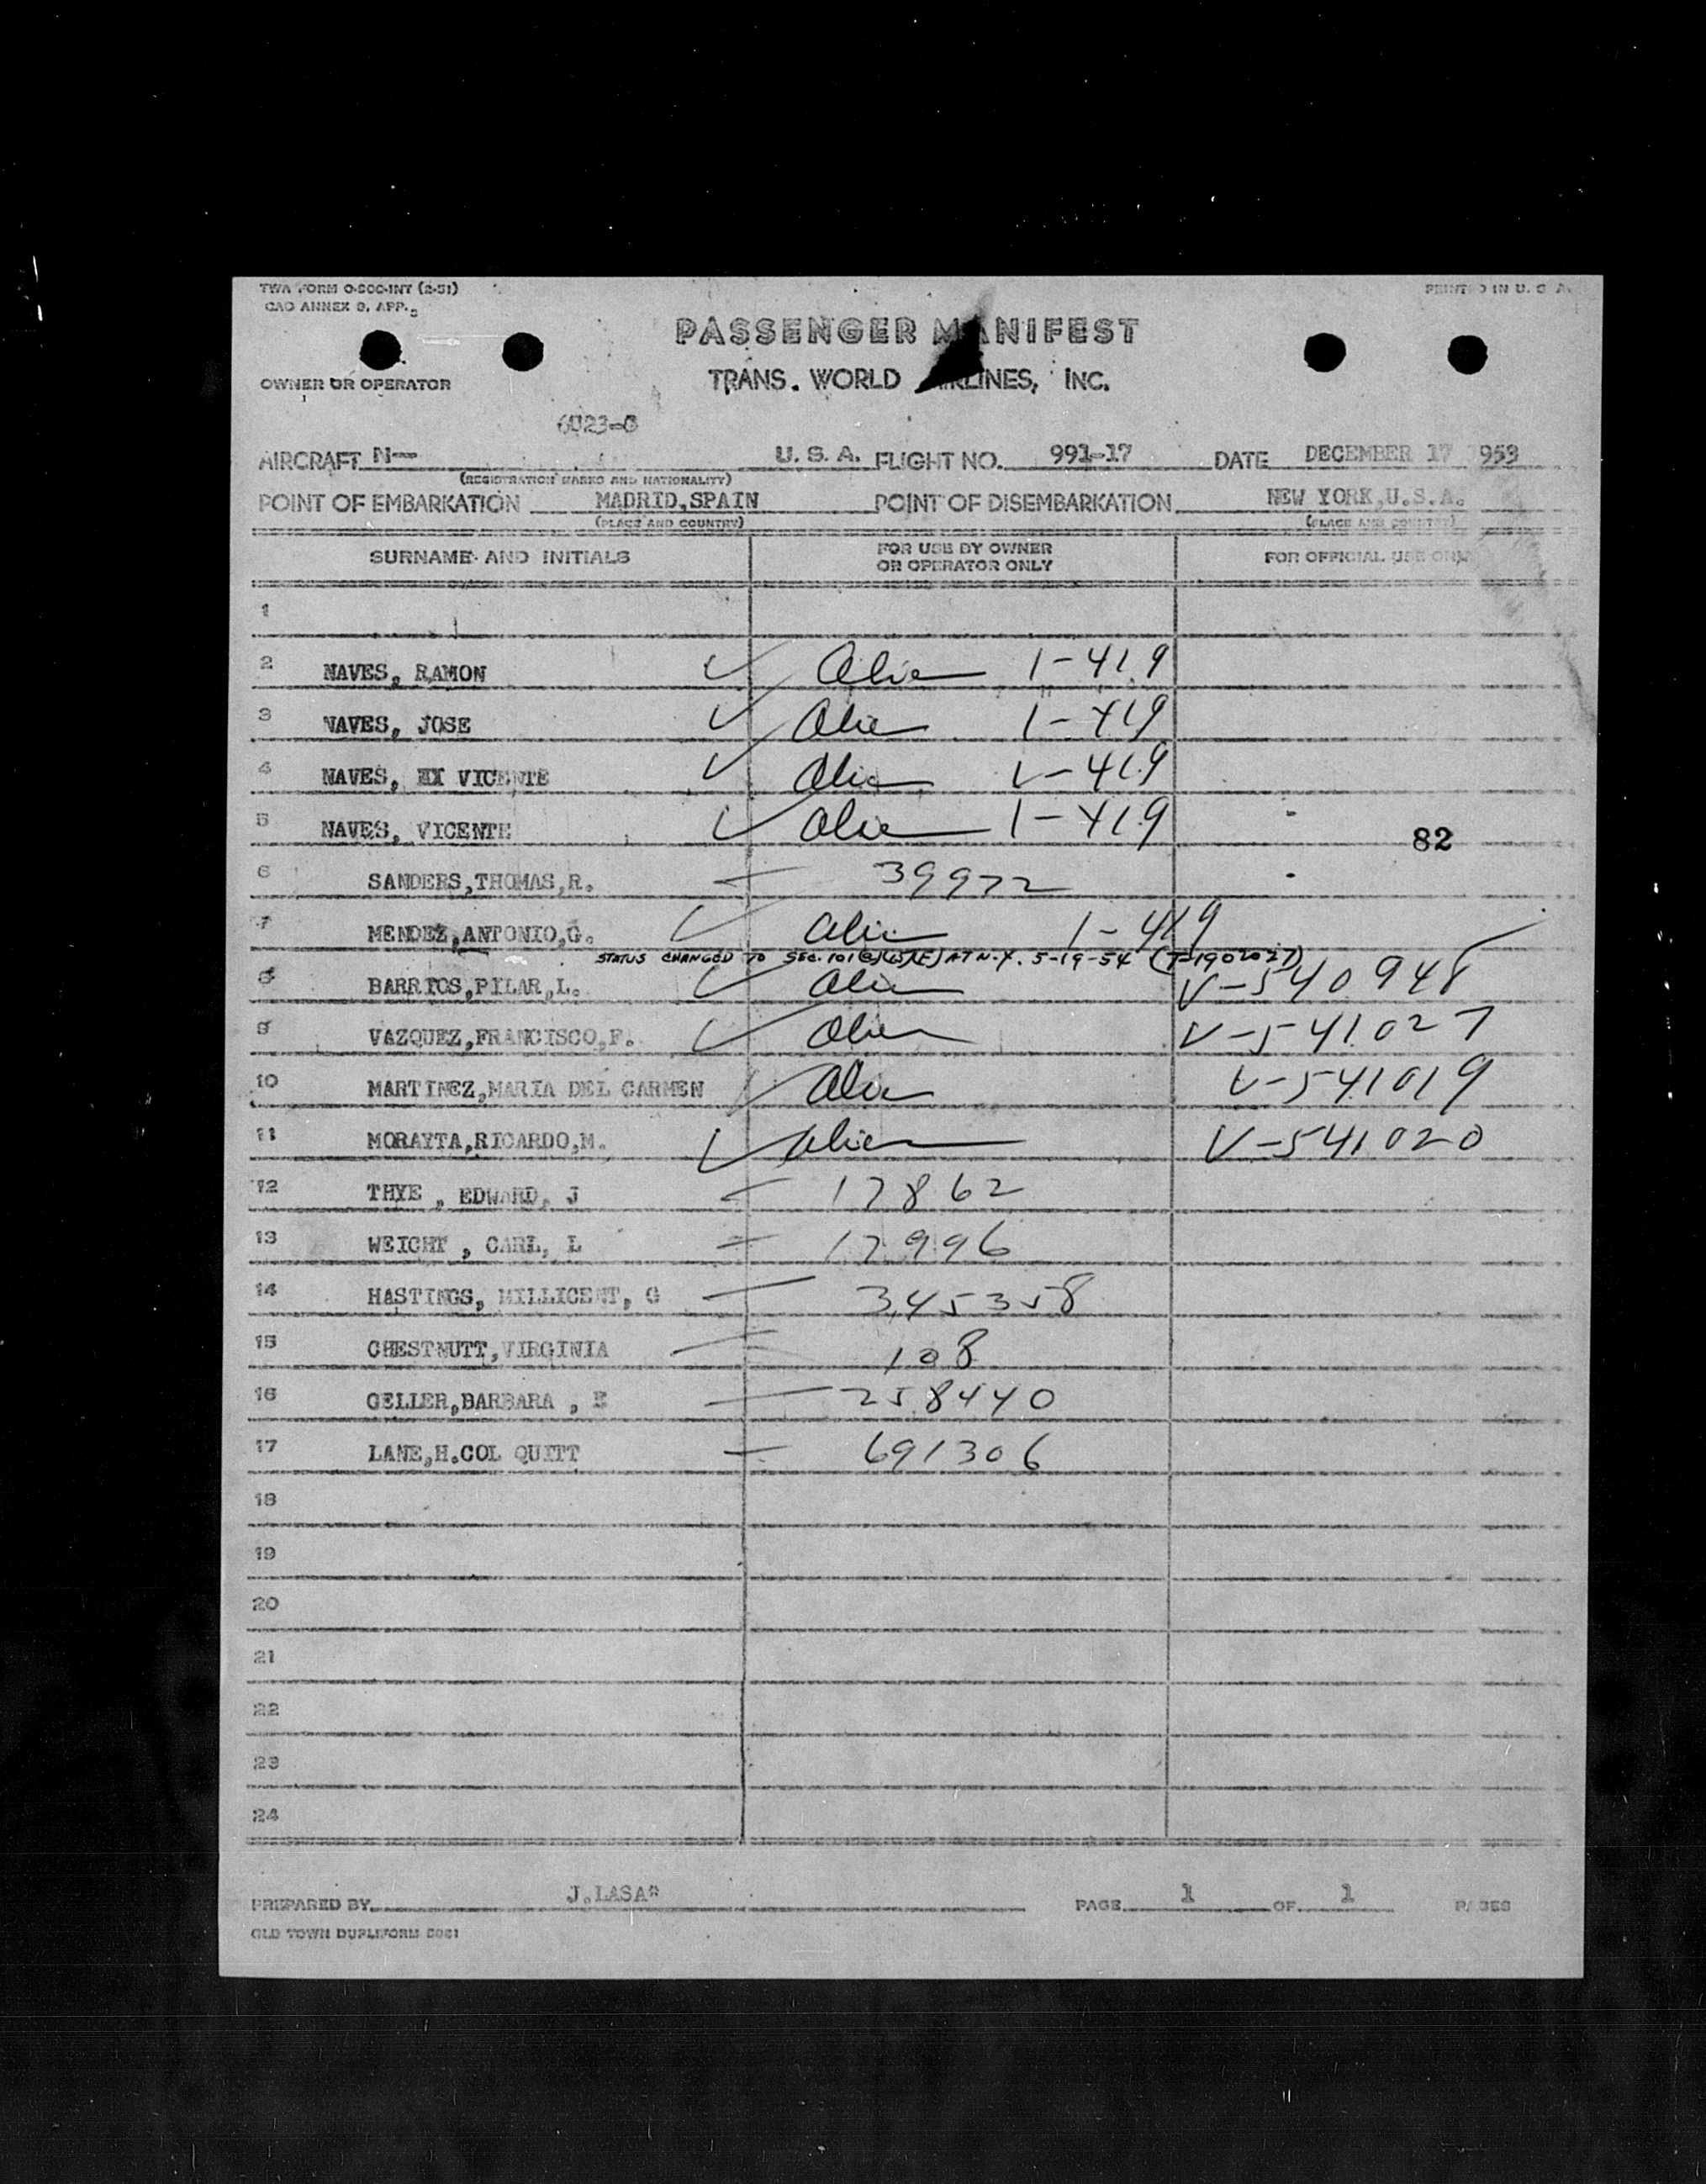 TWA FORM O-800-INT (2-51)
CAO ANNEX 9, APP.
PRINTED IN U. S. A.
PASSENGER MANIFEST
OWNER OR OPERATOR TRANS. WORLD AIRLINES, INC.
6023-C
AIRCRAFT N— U. S. A. FLIGHT NO. 991-17 DATE DECEMBER 17 1953
(REGISTRATION MARKS AND NATIONALITY)
POINT OF EMBARKATION MADRID,SPAIN POINT OF DISEMBARKATION NEW YORK,U.S.A.
(PLACE AND COUNTRY) (PLACE AND COUNTRY)
SURNAME AND INITIALS FOR USE BY OWNER OR OPERATOR ONLY FOR OFFICIAL USE ONLY
1
2 NAVES, RAMON ✓ Alien 1-419
3 NAVES, JOSE ✓ Alien 1-419
4 NAVES, VICENTE ✓ Alien 1-419
5 NAVES, VICENTE ✓ Alien 1-419
82
6 SANDERS,THOMAS,R. — 39972
7 MENDEZ,ANTONIO,G. ✓ Alien 1-419
STATUS CHANGED TO SEC. 101(a)(15)(E) AT N.Y. 5-19-54 (T-1902027)
8 BARRIOS,PILAR,L. ✓ Alien V-540948
9 VAZQUEZ,FRANCISCO,F. ✓ Alien V-541027
10 MARTINEZ,MARIA DEL CARMEN ✓ Alien V-541019
11 MORAYTA,RICARDO,M. ✓ Alien V-541020
12 THYE , EDWARD, J — 17862
13 WEIGHT , CARL, L — 17996
14 HASTINGS, MILLICENT, G — 345358
15 CHESTNUTT,VIRGINIA — 108
16 GELLER,BARBARA , E — 258440
17 LANE,H.COL QUITT — 691306
18
19
20
21
22
23
24
PREPARED BY J.LASA* PAGE 1 OF 1 PAGES
OLD TOWN DUPLIFORM